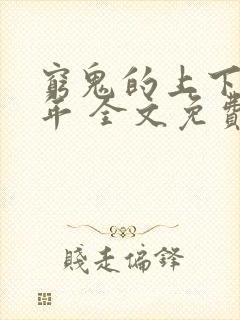 窮鬼的上下
年 全文免費
賤走偏鋒